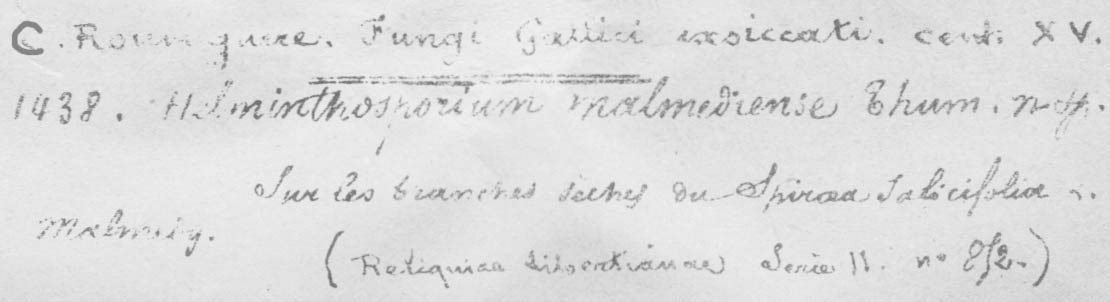 C. Roumeguère. Fungi Gallici exsiccati. cent. XV.
1438. Helminthosporium malmediense Thum. n. sp.
Sur les branches sèches du Spiraea Salicifolia L.
Malmedy.
(Reliquiae Libertianae Serie II. no